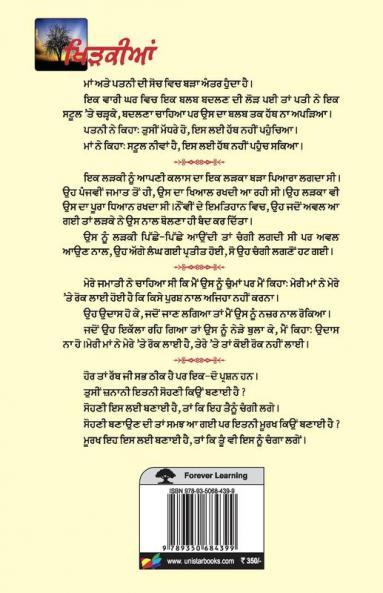 ਖਿੜਕੀਆਂ
ਮਾਂ ਅਤੇ ਪਤਨੀ ਦੀ ਸੋਚ ਵਿਚ ਬੜਾ ਅੰਤਰ ਹੁੰਦਾ ਹੈ।
ਇਕ ਵਾਰੀ ਘਰ ਵਿਚ ਇਕ ਬਲਬ ਬਦਲਣ ਦੀ ਲੋੜ ਪਈ ਤਾਂ ਪਤੀ ਨੇ ਇਕ
ਸਟੂਲ ’ਤੇ ਚੜ੍ਹਕੇ, ਬਦਲਣਾ ਚਾਹਿਆ ਪਰ ਉਸ ਦਾ ਬਲਬ ਤਕ ਹੱਥ ਨਾ ਅਪੜਿਆ।
ਪਤਨੀ ਨੇ ਕਿਹਾ: ਤੁਸੀਂ ਮੱਧਰੇ ਹੋ, ਇਸ ਲਈ ਹੱਥ ਨਹੀਂ ਪਹੁੰਚਿਆ।
ਮਾਂ ਨੇ ਕਿਹਾ: ਸਟੂਲ ਨੀਵਾਂ ਹੈ, ਇਸ ਲਈ ਹੱਥ ਨਹੀਂ ਪਹੁੰਚ ਸਕਿਆ।
ਇਕ ਲੜਕੀ ਨੂੰ ਆਪਣੀ ਕਲਾਸ ਦਾ ਇਕ ਲੜਕਾ ਬੜਾ ਪਿਆਰਾ ਲਗਦਾ ਸੀ।
ਉਹ ਪੰਜਵੀਂ ਜਮਾਤ ਤੋਂ ਹੀ, ਉਸ ਦਾ ਖਿਆਲ ਰਖਦੀ ਆ ਰਹੀ ਸੀ। ਉਹ ਲੜਕਾ ਵੀ
ਉਸ ਦਾ ਪੂਰਾ ਧਿਆਨ ਰਖਦਾ ਸੀ। ਨੌਵੀਂ ਦੇ ਇਮਤਿਹਾਨ ਵਿਚ, ਉਹ ਜਦੋਂ ਅਵਲ ਆ
ਗਈ ਤਾਂ ਲੜਕੇ ਨੇ ਉਸ ਨਾਲ ਬੋਲਣਾ ਹੀ ਬੰਦ ਕਰ ਦਿੱਤਾ।
ਉਸ ਨੂੰ ਲੜਕੀ ਪਿੱਛੇ-ਪਿੱਛੇ ਆਉਂਦੀ ਤਾਂ ਚੰਗੀ ਲਗਦੀ ਸੀ ਪਰ ਅਵਲ
ਆਉਣ ਨਾਲ, ਉਹ ਅੱਗੇ ਲੰਘ ਗਈ ਪ੍ਰਤੀਤ ਹੋਈ, ਸੋ ਉਹ ਚੰਗੀ ਲਗਣੋਂ ਹਟ ਗਈ।
ਮੇਰੇ ਜਮਾਤੀ ਨੇ ਚਾਹਿਆ ਸੀ ਕਿ ਮੈਂ ਉਸ ਨੂੰ ਚੁੰਮਾਂ ਪਰ ਮੈਂ ਕਿਹਾ: ਮੇਰੀ ਮਾਂ ਨੇ ਮੇਰੇ
’ਤੇ ਰੋਕ ਲਾਈ ਹੋਈ ਹੈ ਕਿ ਕਿਸੇ ਪੁਰਸ਼ ਨਾਲ ਅਜਿਹਾ ਨਹੀਂ ਕਰਨਾ।
ਉਹ ਉਦਾਸ ਹੋ ਕੇ, ਜਦੋਂ ਜਾਣ ਲਗਿਆ ਤਾਂ ਮੈਂ ਉਸ ਨੂੰ ਨਜ਼ਰ ਨਾਲ ਰੋਕਿਆ।
ਜਦੋਂ ਉਹ ਇਕੱਲਾ ਰਹਿ ਗਿਆ ਤਾਂ ਉਸ ਨੂੰ ਨੇੜੇ ਬੁਲਾ ਕੇ, ਮੈਂ ਕਿਹਾ: ਉਦਾਸ
ਨਾ ਹੋ। ਮੇਰੀ ਮਾਂ ਨੇ ਮੇਰੇ ’ਤੇ ਰੋਕ ਲਾਈ ਹੈ, ਤੇਰੇ ’ਤੇ ਤਾਂ ਕੋਈ ਰੋਕ ਨਹੀਂ ਲਾਈ।
ਹੋਰ ਤਾਂ ਰੱਬ ਜੀ ਸਭ ਠੀਕ ਹੈ ਪਰ ਇਕ-ਦੋ ਪ੍ਰਸ਼ਨ ਹਨ।
ਤੁਸੀਂ ਜ਼ਨਾਨੀ ਇਤਨੀ ਸੋਹਣੀ ਕਿਉਂ ਬਣਾਈ ਹੈ?
ਸੋਹਣੀ ਇਸ ਲਈ ਬਣਾਈ ਹੈ, ਤਾਂ ਕਿ ਇਹ ਤੈਨੂੰ ਚੰਗੀ ਲਗੇ।
ਸੋਹਣੀ ਬਣਾਉਣ ਦੀ ਤਾਂ ਸਮਝ ਆ ਗਈ ਪਰ ਇਤਨੀ ਮੂਰਖ ਕਿਉਂ ਬਣਾਈ ਹੈ?
ਮੂਰਖ ਇਹ ਇਸ ਲਈ ਬਣਾਈ ਹੈ, ਤਾਂ ਕਿ ਤੂੰ ਵੀ ਇਸ ਨੂੰ ਚੰਗਾ ਲਗੇਂ।
Forever Learning
ISBN 978-93-5068-439-9
9 789350 684399
www.unistarbooks.com ₹ 350/-